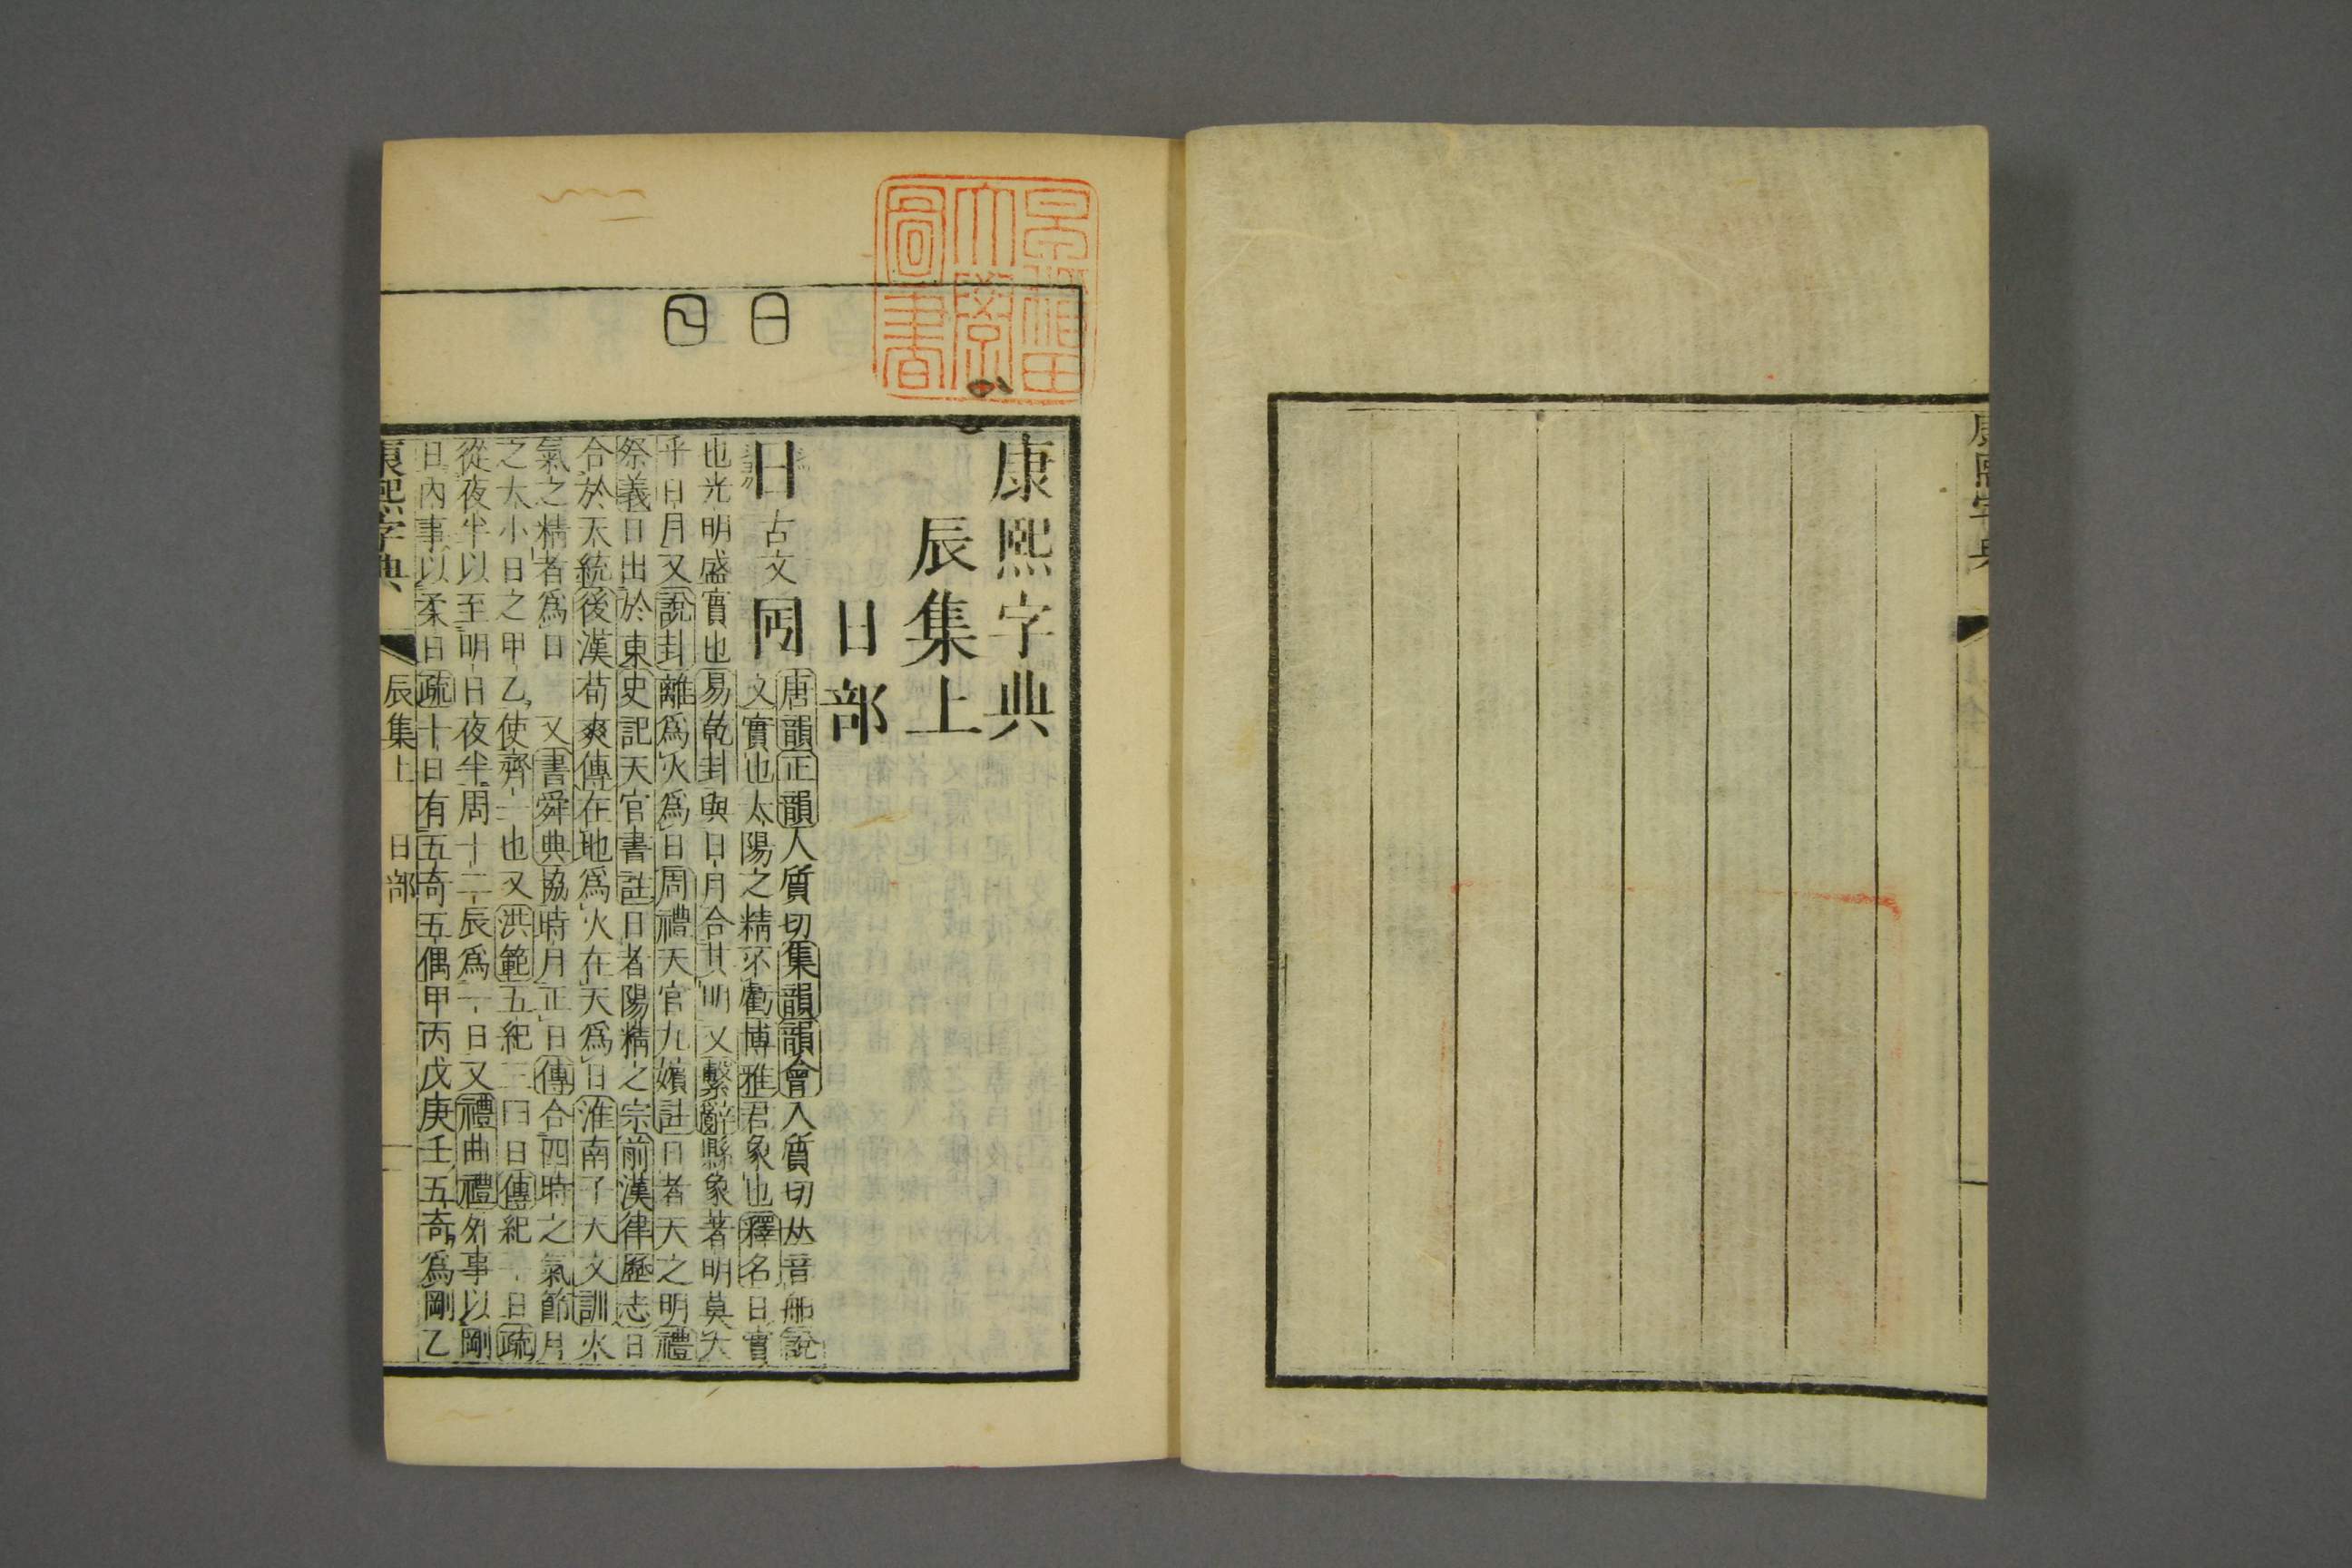 康熙字典
早稻田
大學
圖書
日
康熙字典
辰集上
日部
日 古文
唐韻正韻人質切集韻韻會入質切𠀤音馹說
文實也太陽之精不虧博雅君象也釋名日實
也光明盛實也易乾卦與日月合其明又繫辭縣象著明莫大
乎日月又說卦離爲火爲日周禮天官九嬪註日者天之明禮
祭義日出於東史記天官書註日者陽精之宗前漢律歷志日
合於天統後漢荀爽傳在地爲火在天爲日淮南子天文訓火
氣之精者爲日 又書舜典協時月正日傳合四時之氣節月
之大小日之甲乙使齊一也又洪範五紀三曰日傳紀一日疏
從夜半以至明日夜半周十二辰爲一日又禮曲禮外事以剛
日內事以柔日疏十日有五奇五偶甲丙戊庚壬五奇爲剛乙
康熙字典 辰集上 日部 一